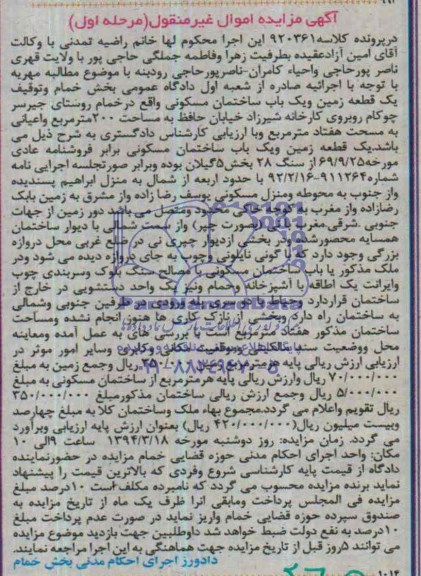 آگهی مزایده اموال غیرمنقول(مرحله اول)
درپرونده کلاسه۹۲۰۳۶۱ این اجرا محکوم لها خانم راضیه تمدنی با وکالت
آقای امین آزادعقیده بطرفیت زهرا وفاطمه جملگی حاجی پور با ولایت قهری
ناصر پورحاجی واحیاء کامران-ناصرپورحاجی رودپنه با موضوع مطالبه مهریه
با توجه با اجرائیه صادره از شعبه اول دادگاه عمومی بخش خمام وتوقیف
یک قطعه زمین ویک باب ساختمان مسکونی واقع درخمام روستای جیرسر
چوکام روبروی کارخانه شیرزاد خیابان حافظ به مساحت ۲۰۰مترمربع واعیانی
به مسحت هفتاد مترمربع وبا ارزیابی کارشناس دادگستری به شرح ذیل می
باشدیک قطعه زمین ویک باب ساختمان مسکونی برابر فروشنامه عادی
مورخه۶۹/۹/۲۵ از سنگ ۲۸ بخش۵گیلان بوده وبرابر صورتجلسه اجرایی نامه
شماره۹۱۱۲۶۴-۹۲/۲/۱۶ با حدود اربعه از شمال به منزل ابراهیم پسندیده
واز جنوب به محوطه ومنزل مسکونی یوسف رضا زاده واز مشرق به زمین بابک
رضازاده واز مغرب به کوچه خاکی محدود ومتصل می باشد دور زمین از جهات
جنوبی .شرقی.مغربی نی (صورت چپر) واز سمت شمالی با دیوار ساختمان
همسایه محصورشده ودر بخشی ازدیوار چپری نی در ضلع غربی محل دروازه
بزرگی وجود دارد که با گونی نایلونی وچوب به جای دروازه دیده می شود ودر
ملک مذکور یا باب ساختمان مسکونی با مصالح سنگ بلوک وسربندی چوب
وایرانت یک اطاقه با آشپزخانه وحمام ونیز یک واحد دستشویی در خارج از
ساختمان قراردارد وحیاط با دو سری پله ورودی در طرفین جنوبی وشمالی
به ساختمان راه دارد وبخشی از نازک کاری ها هنوز انجام نشده ومساحت
ساختمان مذکور هفتاد مترمربع است با بررسی های به عمل آمده ومعاینه
محل ووضعیت سند مالکیتی وموقعیت مکانی وکاربری وسایر امور موثر در
ارزیابی ارزش ریالی پایه هرمترمربع زمین ریال وجمع زمین به مبلغ
۷۰/۰۰۰/۰۰۰ ریال وارزش ریالی پایه هرمترمربع از ساختمان مسکونی به مبلغ
۵/۰۰۰/۰۰۰ ریال وجمع ارزش ریالی ساختمان مذکورمبلغ ۳۵۰/۰۰۰/۰۰۰
ریال تقویم واعلام می گردد.مجموع بهاء ملک وساختمان کلا به مبلغ چهارصد
وبیست میلیون ریال(۴۲۰/۰۰۰/۰۰۰ ریال) بعنوان ارزش پایه ارزیابی وبرآورد
می گردد. زمان مزایده: روز دوشنبه مورخه ۱۳۹۴/۳/۱۸ ساعت ۹الی ۱۰
مکان: واحد اجرای احکام مدنی حوزه قضایی خمام مزایده در حضورنماینده
دادگاه از قیمت پایه کارشناسی شروع وفردی که بالاترین قیمت را پیشنهاد
نماید برنده مزایده محسوب می گردد که نامبرده مکلف است ۱۰درصد مبلغ
مزایده فی المجلس پرداخت ومابقی انرا ظرف یک ماه از تاریخ مزایده به
صندوق سپرده حوزه قضایی خمام واریز نماید در صورت عدم پرداخت مبلغ
۱۰درصد به نفع دولت ضبط خواهد شد داوطلبین جهت بازدید موضوع مزایده
می توانند ۵روز قبل از تاریخ مزایده جهت هماهنگی به این اجرا مراجعه نمایند.
دادورز اجرای احکام مدنی بخش خمام
۱۰۱۴